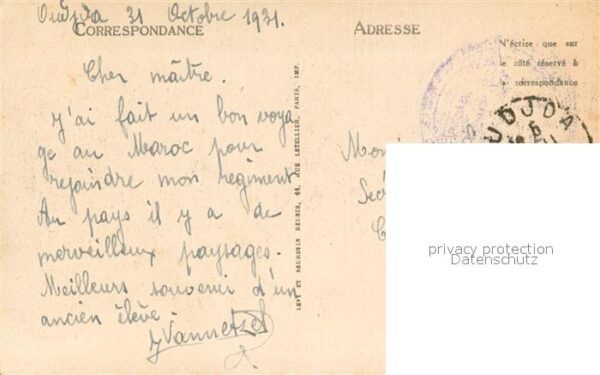 Oudjda 31 Octobre 1931.
CORRESPONDANCE
Cher maître.
J'ai fait un bon voya
ge au Maroc pour
rejoindre mon regiment
Au pays il y a de
merveilleux paysages.
Meilleurs souvenir d'un
ancien élève.
LEVY ET NEURDEIN REUNIS, 44, RUE LETELLIER, PARIS, IMP.
ADRESSE
N'écrire que sur
le côté réservé à
la correspondance
OUDJDA
privacy protection
Datenschutz